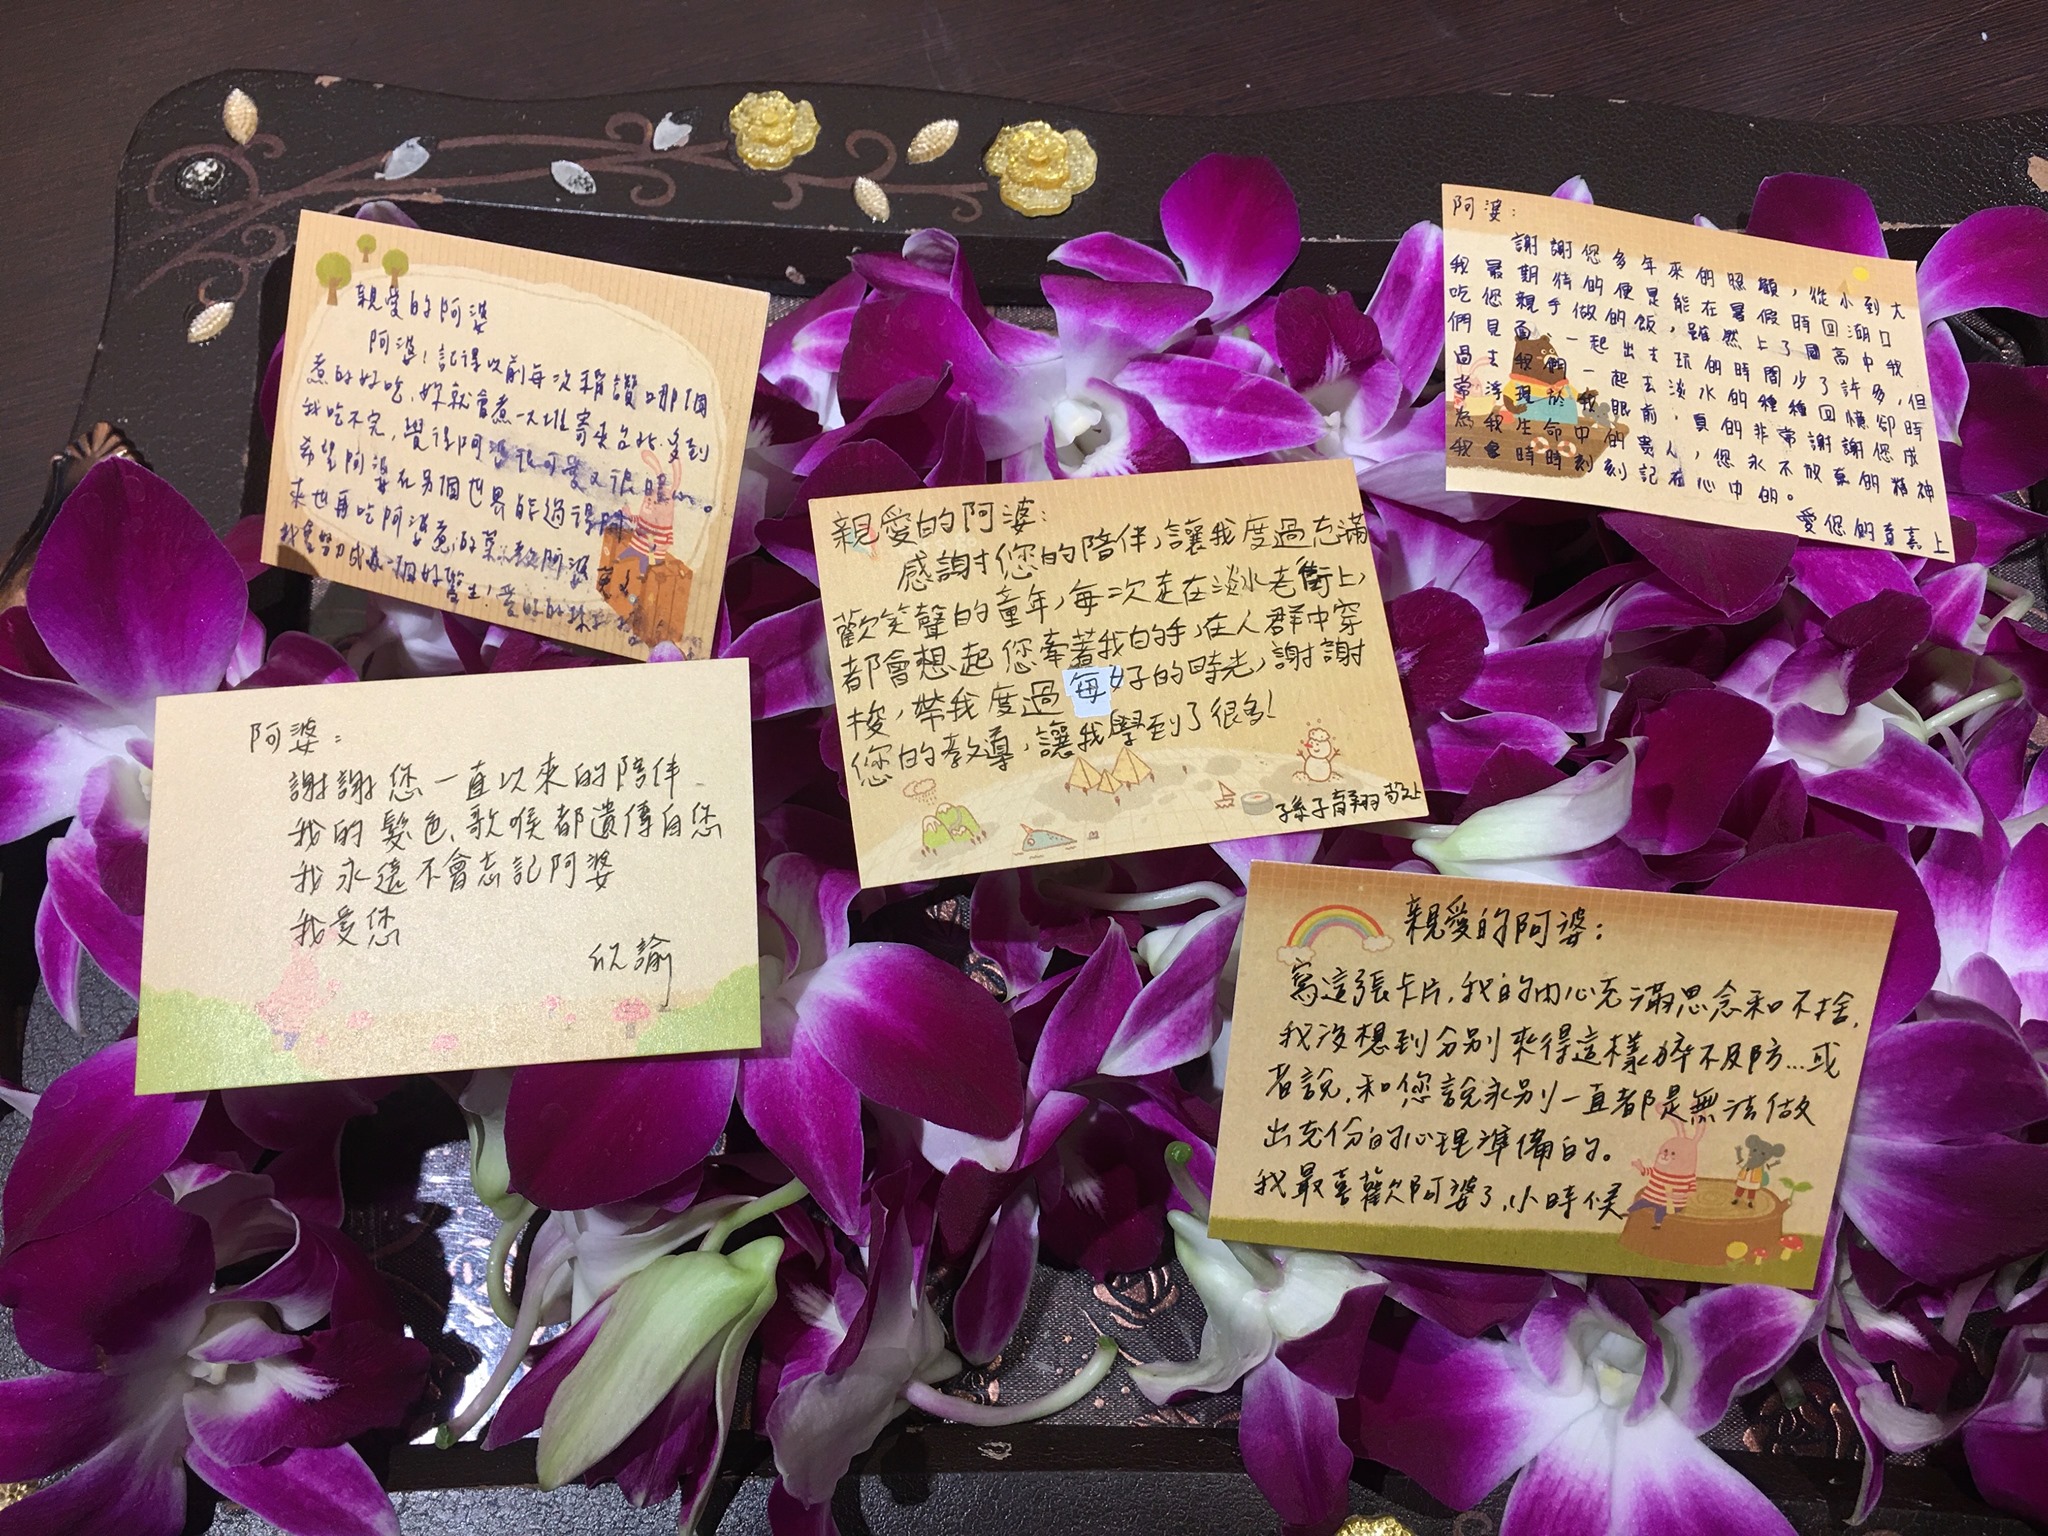 親愛的阿婆
阿婆！記得以前每次稱讚哪個
煮的好吃，妳就會煮一大堆寄來台北，多到
我吃不完，覺得阿婆很可愛又很貼心。
希望阿婆在另個世界能過得
來世再吃阿婆煮的菜
我會努力成為一個好醫生！愛妳的
阿婆：
謝謝您多年來的照顧，從小到大
我最期待的便是能在暑假時回湖口
吃您親手做的飯，雖然上了國高中我
們見面、一起出去玩的時間少了許多，但
過去我們一起去淡水的種種回憶卻時
常浮現於我眼前，真的非常謝謝您成
為我生命中的貴人，您永不放棄的精神
我會時時刻刻記在心中的。
愛您的 嘉上
親愛的阿婆：
感謝您的陪伴，讓我度過充滿
歡笑聲的童年，每次走在淡水老街上，
都會想起您牽著我的手，在人群中穿
梭，帶我度過每好的時光，謝謝
您的教導，讓我學到了很多！
孫子 翔 敬上
阿婆：
謝謝您一直以來的陪伴、
我的髮色、歌喉都遺傳自您
我永遠不會忘記阿婆
我愛您
欣諭
親愛的阿婆：
寫這張卡片，我的內心充滿思念和不捨，
我沒想到分別來得這樣猝不及防...或
者說，和您說永別一直都是無法做
出充份的心理準備的。
我最喜歡阿婆了，小時候